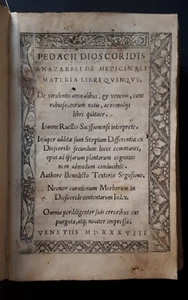 PEDACII DIOSCORIDIS
ANAZARBEI DE MEDICINALI
MATERIA LIBRI QUINQUE.
De virulentis animalibus, et venenis, cane
rabioso, eorum notis, ac remediis
libri quatuor.
Ioanne Ruellio Suessionensi interprete.
addita sunt Stirpium Differentiæ ex
Dioscoride secundum locos communes,
opus ad ipsarum plantarum cognitionem
admodum conducibile.
Authore Benedicto Textore Segusiano.
Morborum in
Dioscoride contentorum Index.
Omnia perdiligenter suis erroribus ex
purgata, atq; nouiter impressa.
VENETIIS M D XXXVIII